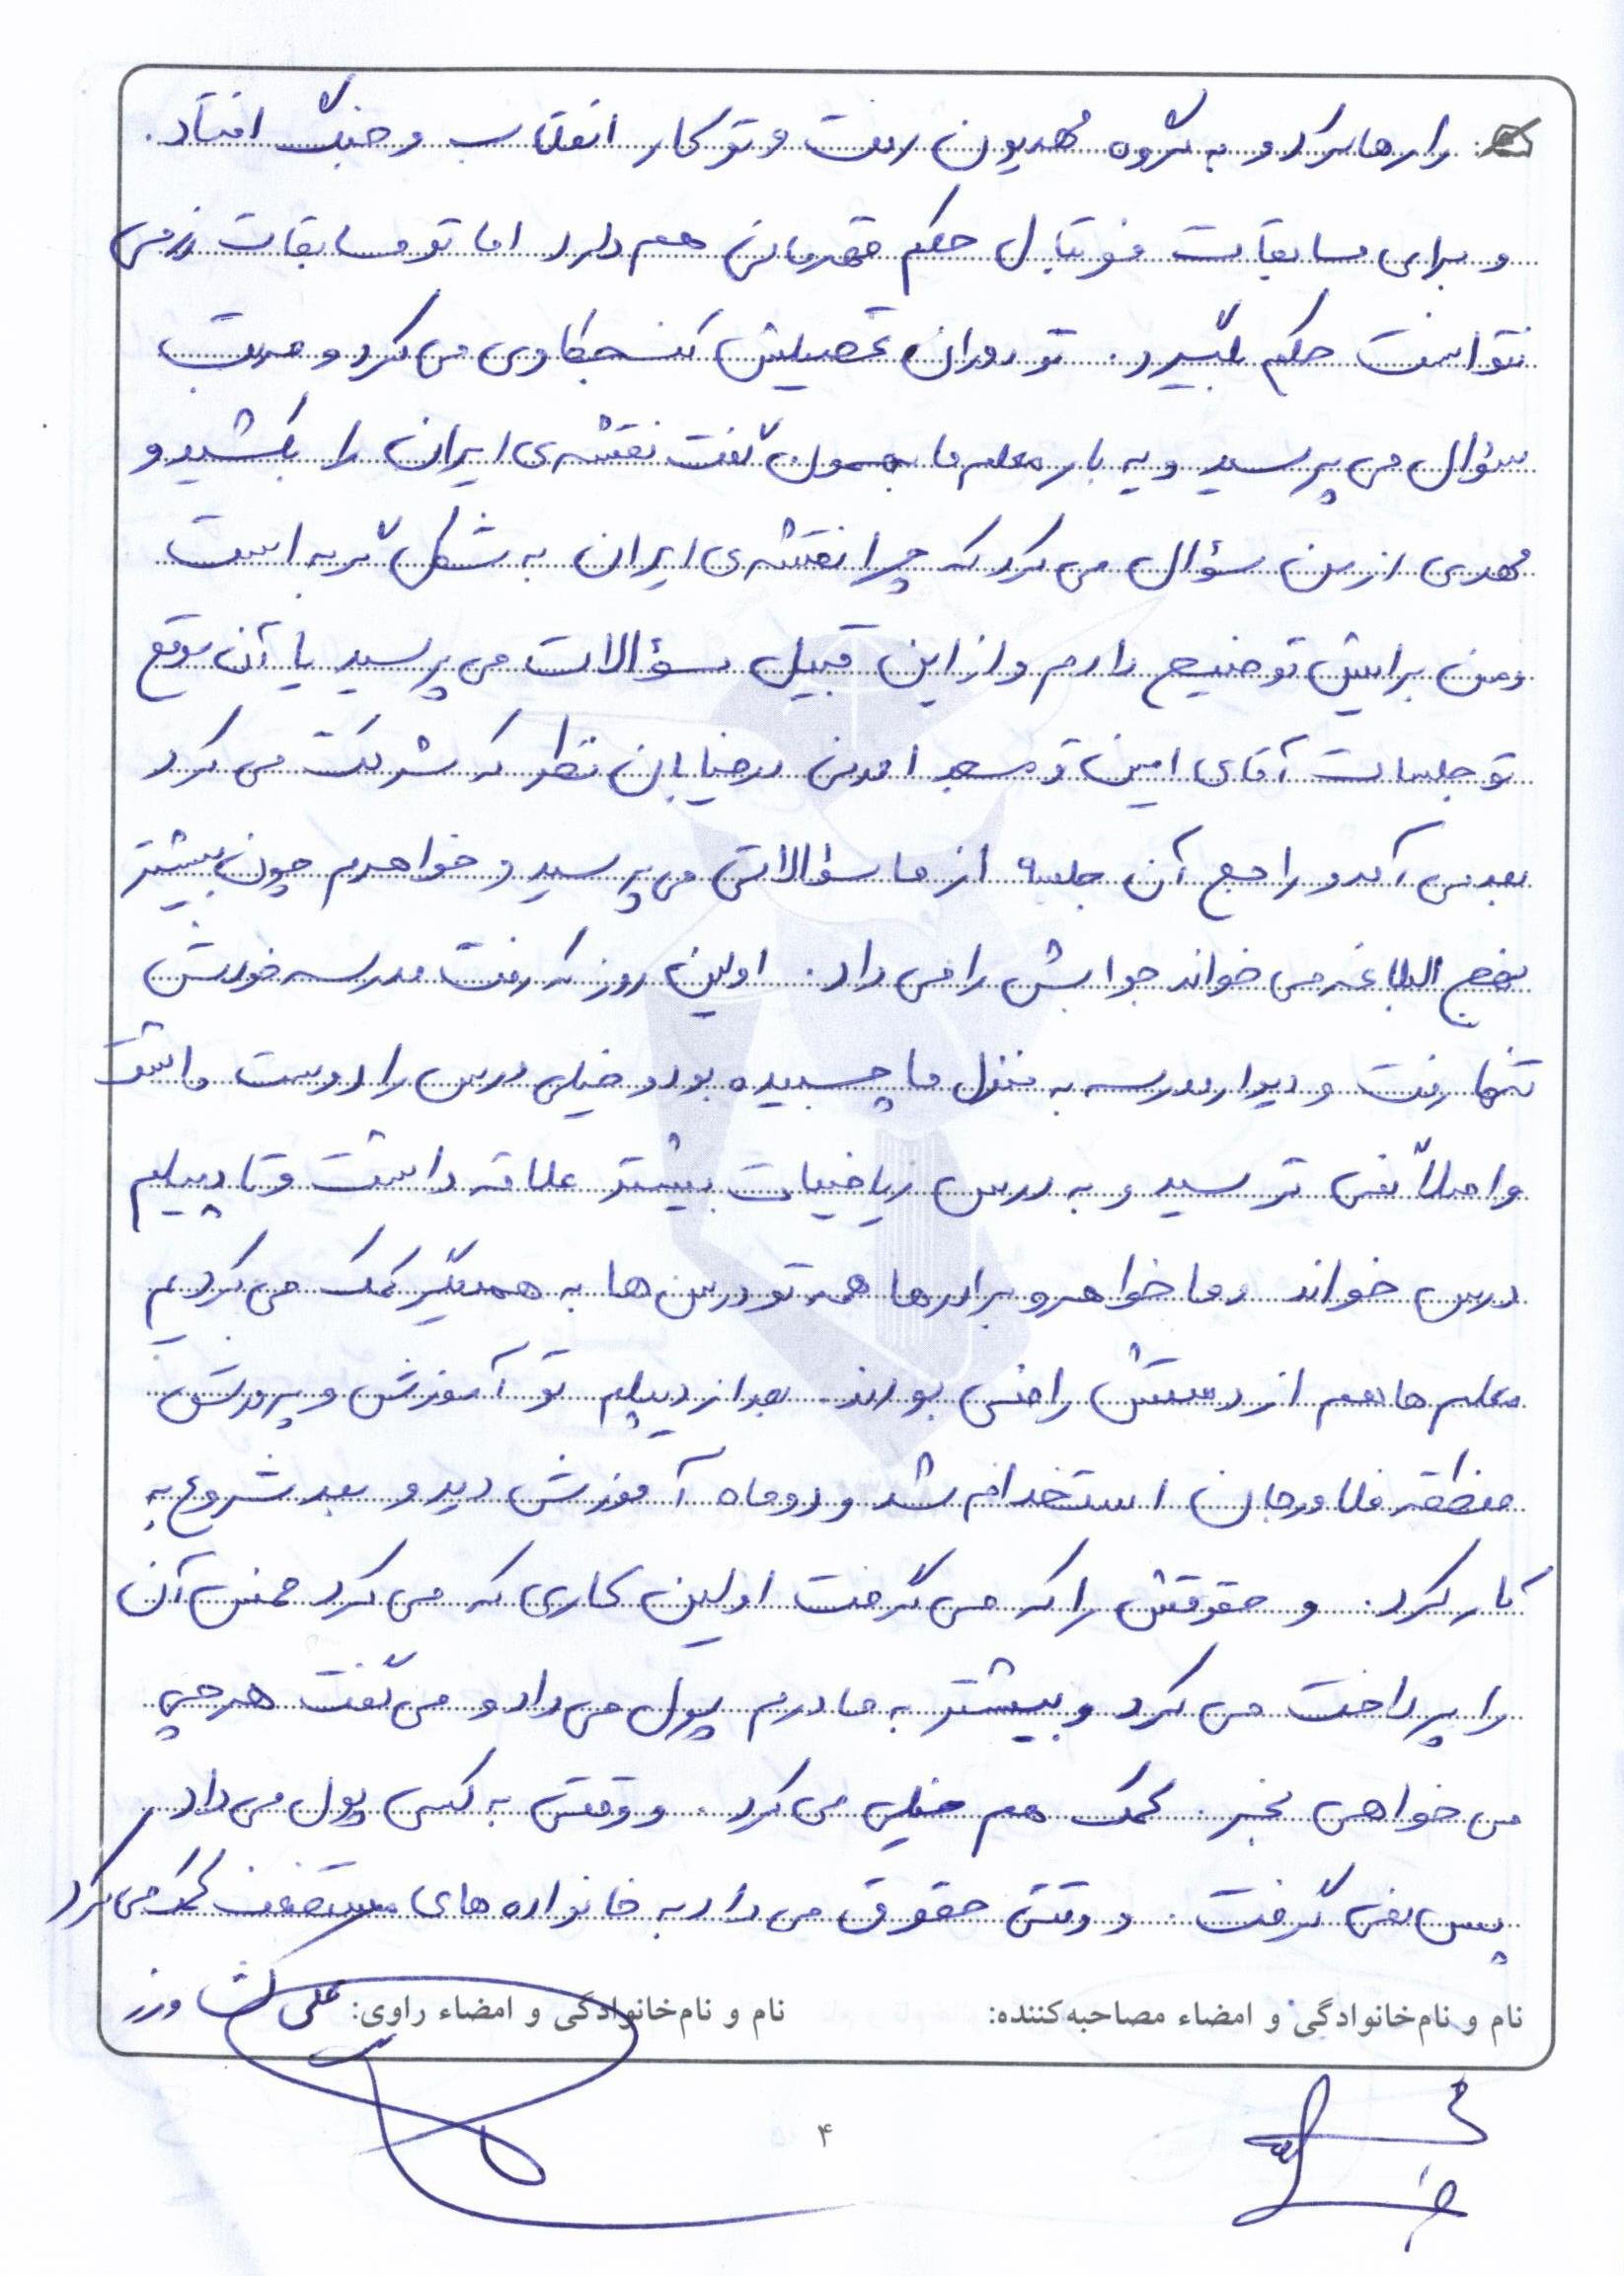 را رها کرد و به گروه مهدیون رفت و تو کار انقلاب و جنگ افتاد.
و برای مسابقات فوتبال حکم قهرمانی هم دارد اما تو مسابقات رزمی
نتوانست حکم بگیرد. تو دوران تحصیلش کنجکاوی می کرد و مرتب
سؤال می پرسید و یه بار معلم ما بهمون گفت نقشه ی ایران را بکشید و
مهدی از من سؤال می کرد که چرا نقشه ی ایران به شکل گربه است
ومن برایش توضیح دادم و از این قبیل سؤالات می پرسید یا آن موقع
تو جلسات آقای امین تو مسجد در خیابان نظر که شرکت می کرد
بعد می آمد و راجع آن جلسه از ما سؤالاتی می پرسید و خواهرم چون بیشتر
نهج البلاغه می خواند جوابش را می داد. اولین روز که رفت مدرسه خودش
تنها رفت و دیوار مدرسه به منزل ما چسبیده بود و خیلی درس را دوست داشت
و اصلاً نمی ترسید و به درس ریاضیات بیشتر علاقه داشت و تا دیپلم
درس خواند و ما خواهر و برادرها همه تو درس ها به همدیگر کمک می کردیم
معلم ها هم از دستش راضی بودند. بعد از دیپلم تو آموزش و پرورش
منطقه فلاورجان استخدام شد و دو ماه آموزش دید و بعد شروع به
کار کرد. و حقوقش را که می گرفت اولین کاری که می کرد خمس آن
را پرداخت می کرد و بیشتر به مادرم پول می داد و می گفت هر چی
می خواهی بخر. کمک هم خیلی می کرد. و وقتی به کسی پول می داد
پس نمی گرفت. و وقتی حقوق می داد به خانواده های مستضعف کمک می کرد
نام و نام‌خانوادگی و امضاء مصاحبه‌کننده: نام و نام‌خانوادگی و امضاء راوی: علی کشاورز
۴